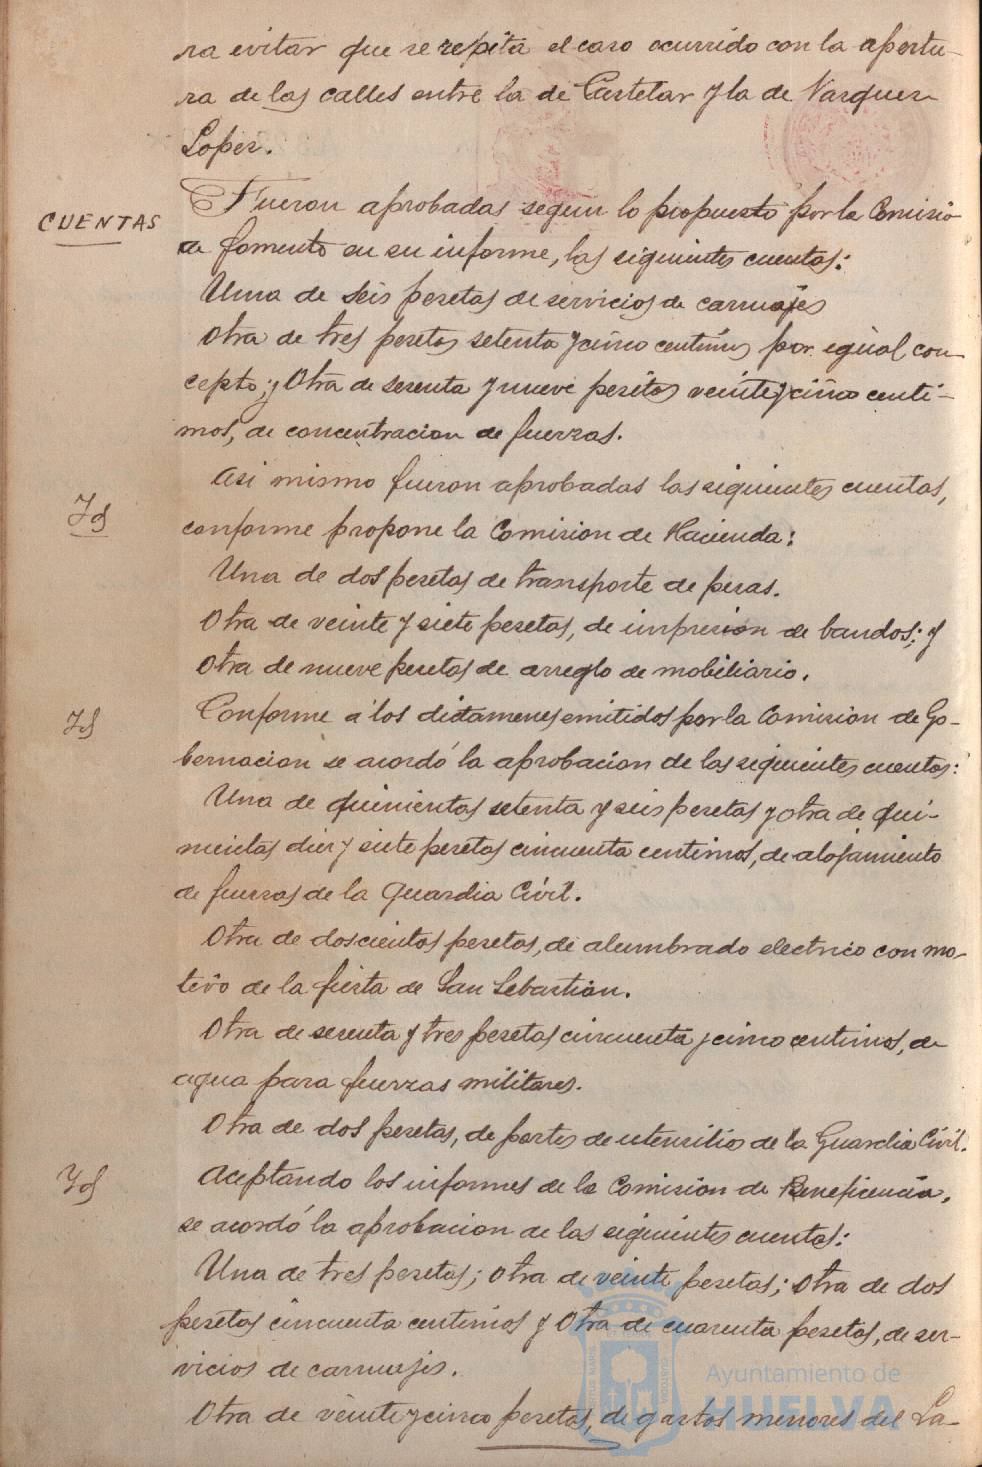 ra evitar que se repita el caso ocurrido con la apertu-
ra de las calles entre la de Castelar y la de Vazquez
Lopez.
CUENTAS
Fueron aprobadas segun lo propuesto por la Comisio
de fomento en su informe, las siguientes cuentas:
Una de seis pesetas de servicios de carruajes
Otra de tres pesetas setenta y cinco centimos por igual con-
cepto; y Otra de sesenta y nueve pesetas veinte y cinco centi-
mos, de concentracion de fuerzas.
Id
Asi mismo fueron aprobadas las siguientes cuentas,
conforme propone la Comision de Hacienda:
Una de dos pesetas de transporte de pesas.
Otra de veinte y siete pesetas, de impresion de bandos; y
Otra de nueve pesetas de arreglo de mobiliario.
Id
Conforme á los dictamenes emitidos por la Comision de Go-
bernacion se acordó la aprobacion de las siguientes cuentas:
Una de quinientas setenta y seis pesetas y otra de qui-
nientas diez y siete pesetas cincuenta centimos, de alojamiento
de fuerzas de la Guardia Civil.
Otra de doscientas pesetas, de alumbrado electrico con mo-
tivo de la fiesta de San Sebastian.
Otra de sesenta y tres pesetas cincuenta y cinco centimos, de
agua para fuerzas militares.
Otra de dos pesetas, de portes de utensilios de la Guardia Civil.
Id
Aceptando los informes de la Comision de Beneficencia,
se acordó la aprobacion de las siguientes cuentas:
Una de tres pesetas; otra de veinte pesetas; otra de dos
pesetas cincuenta centimos y Otra de cuarenta pesetas, de ser-
vicios de carruajes.
Otra de veinte y cinco pesetas, de gastos menores del La-
Ayuntamiento de
HUELVA